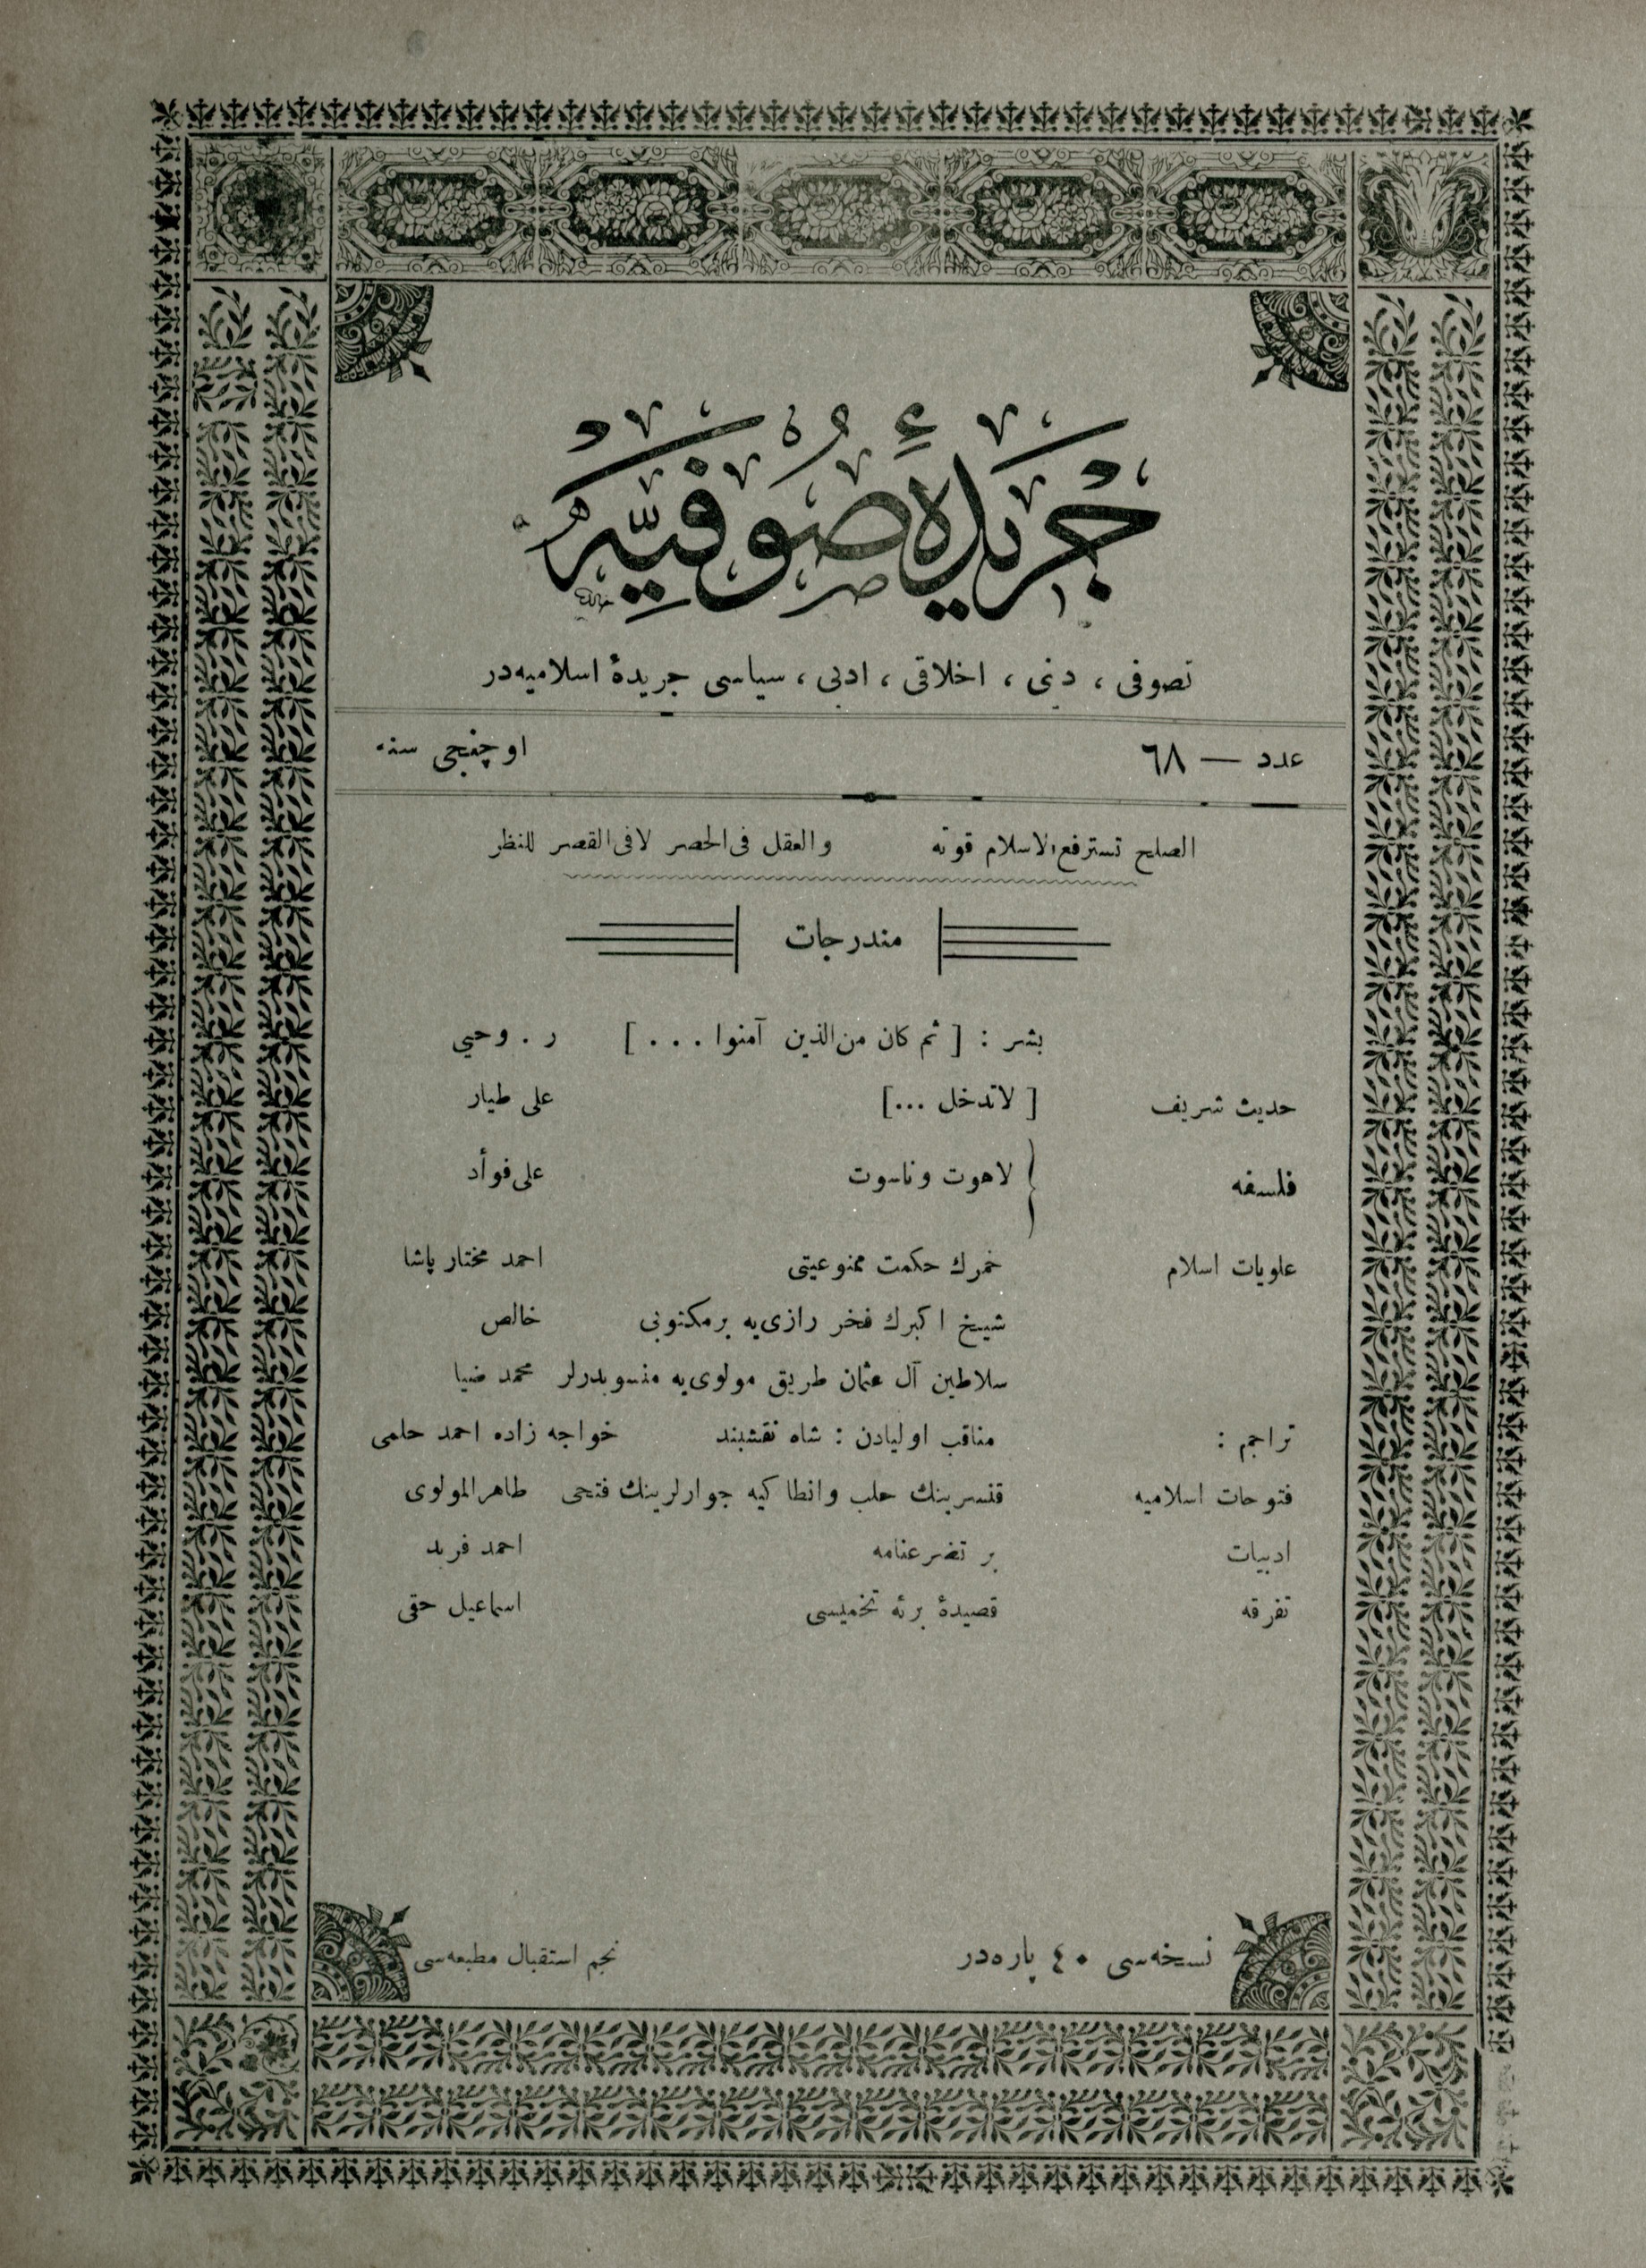 جريدهٔ صوفيه
تصوفى ، دينى ، اخلاقى ، ادبى ، سياسى جريدهٔ اسلاميه‌در
عدد — ٦٨ اوچنجى سنه
الصلح تسترفع الاسلام قوته والعقل فى‌الحصر لا فى‌القصر للنظر
مندرجات
بشر : [ ثم كان من‌الذين آمنوا . . . ] ر . وحيى
حديث شريف [ لاتدخل ... ] على طيار
فلسفه { لاهوت وناسوت على‌فوأد
علويات اسلام خمرك حكمت ممنوعيتى احمد مختار پاشا
شيخ اكبرك فخر رازى‌يه بر مكتوبى خالص
سلاطين آل عثمان طريق مولوى‌يه منسوبدرلر محمد ضيا
تراجم : مناقب اوليادن : شاه نقشبند خواجه زاده احمد حلمى
فتوحات اسلاميه قنسرينك حلب وانطاكيه جوارلرينك فتحى طاهرالمولوى
ادبيات بر تضرعنامه احمد فريد
تفرقه قصيدهٔ برئه تخميسى اسماعيل حقى
نسخه‌سى ٤٠ پاره‌در نجم استقبال مطبعه‌سى